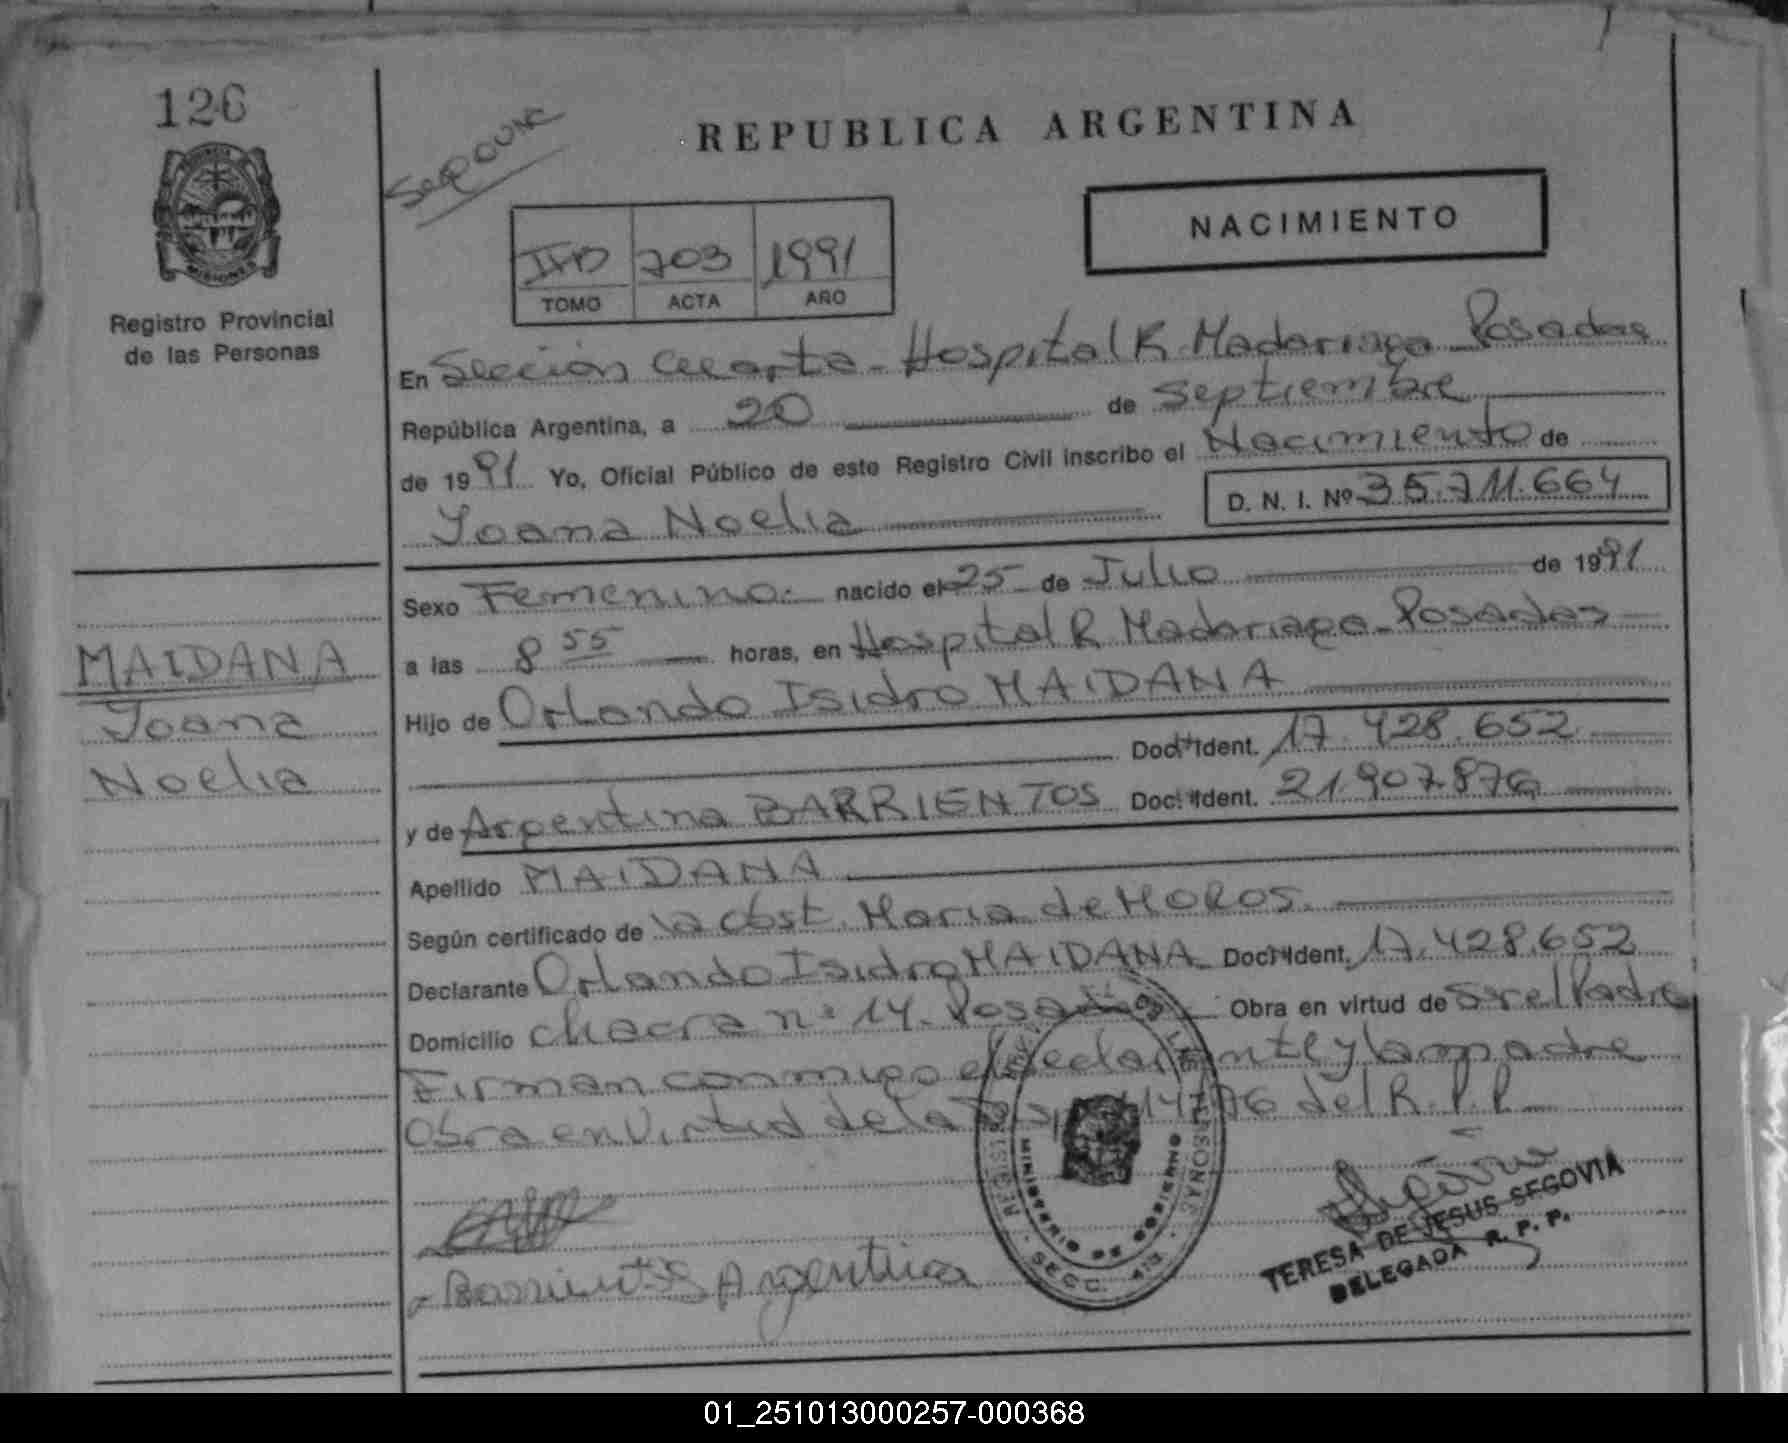 126
PROVINCIA
MISIONES
Registro Provincial
de las Personas
MAIDANA
Yoana
Noelia
REPUBLICA ARGENTINA
NACIMIENTO
703 1991
TOMO ACTA AÑO
En Sección Cuarta - Hospital R. Madariaga - Posadas
República Argentina, a 20 de Septiembre
de 1991 Yo, Oficial Público de este Registro Civil inscribo el Nacimiento de
Yoana Noelia D. N. I. Nº 35.711.664
Sexo Femenino.- nacido el 25 de Julio de 1991
a las 8 55 horas, en Hospital R. Madariaga - Posadas
Hijo de Orlando Isidro MAIDANA
Doc. Ident. 17.428.652
y de Argentina BARRIENTOS Doc. Ident. 21.907.876
Apellido MAIDANA
Según certificado de la Obst. Maria de MOROS.
Declarante Orlando Isidro MAIDANA Doc. Ident. 17.428.652
Domicilio Chacra nº 14 - Posadas Obra en virtud de Ser el Padre
Firman conmigo el declarante y la madre
Obra en Virtud de la 114/76 del R.P.P.
MINISTERIO DE GOBIERNO
SECC. 4ta.
Barrientos Argentina
TERESA DE JESUS SEGOVIA
DELEGADA R. P. P.
01_251013000257-000368